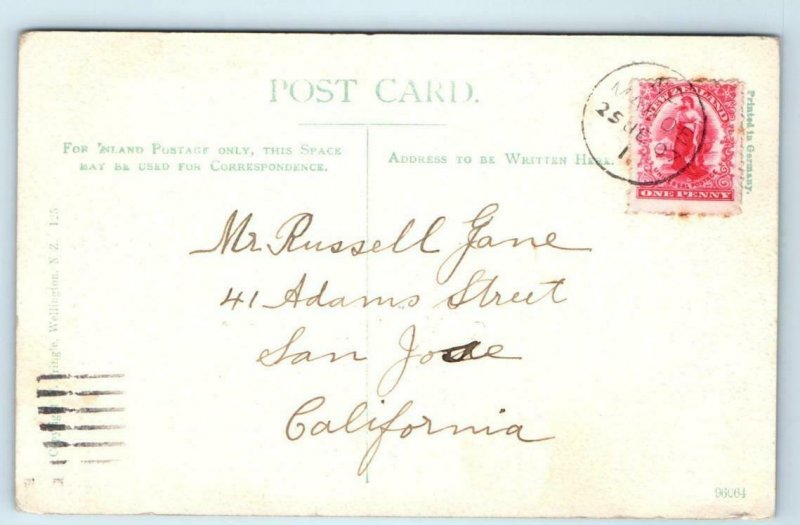 POST CARD.
FOR INLAND POSTAGE ONLY, THIS SPACE
MAY BE USED FOR CORRESPONDENCE.
ADDRESS TO BE WRITTEN HERE.
ONE PENNY
Printed in Germany.
Mr. Russell Jane
41 Adams Street
San Jose
California
Wellington, N. Z. 125
96064